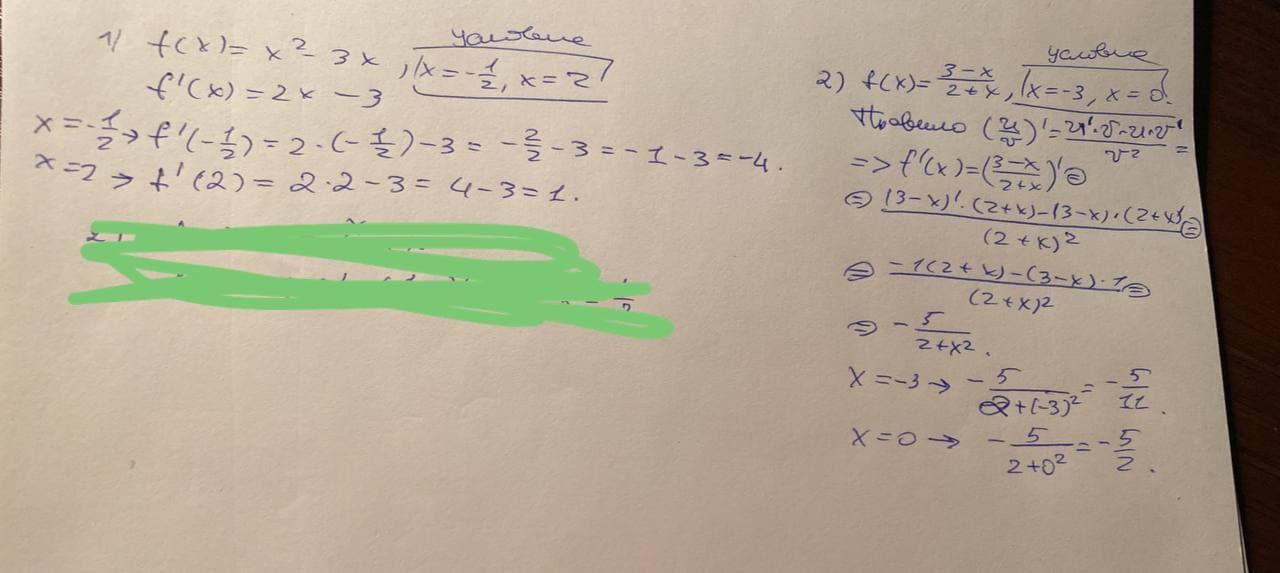 1) f(x) = x² - 3x , | x = -1/2, x = 2 |
условие
f'(x) = 2x - 3
x = -1/2 → f'(-1/2) = 2·(-1/2) - 3 = -2/2 - 3 = -1 - 3 = -4.
x = 2 → f'(2) = 2·2 - 3 = 4 - 3 = 1.
условие
2) f(x) = (3-x)/(2+x), | x = -3, x = 0.
Правило (u/v)' = (u'·v - u·v')/v² =
=> f'(x) = ((3-x)/(2+x))' =
= ((3-x)'·(2+x) - (3-x)·(2+x)')/(2+x)² =
= (-1(2+x) - (3-x)·1)/(2+x)² =
= -5/(2+x²).
x = -3 → -5/(2+(-3)²) = -5/11.
x = 0 → -5/(2+0²) = -5/2.